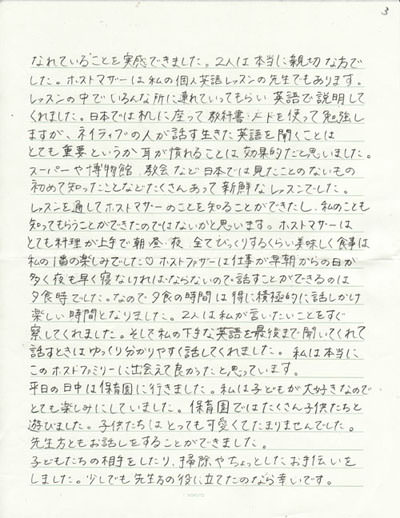 3
なれていることを実感できました。2人は本当に親切な方で
した。ホストマザーは私の個人英語レッスンの先生でもあります。
レッスンの中でいろんな所に連れていってもらい英語で説明して
くれました。日本では机に座って教科書・ノートを使って勉強し
ますが、ネイティブの人が話す生きた英語を聞くことは
とても重要というか耳が慣れることは効果的だと思いました。
スーパーや博物館、教会など日本では見たことのないもの
初めて知ったことなどたくさんあって新鮮なレッスンでした。
レッスンを通してホストマザーのことを知ることができたし、私のことも
知ってもらうことができたのではないかと思います。ホストマザーは
とても料理が上手で朝・昼・夜、全てびっくりするくらい美味しく食事は
私の1番の楽しみでした♡ホストファザーは仕事が早朝からの日が
多く夜も早く寝なければならないので話すことができるのは
夕食時でした。なので夕食の時間は特に積極的に話しかけ
楽しい時間となりました。2人は私が言いたいことをすぐ
察してくれました。そして私の下手な英語を最後まで聞いてくれて
話すときはゆっくり分かりやすく話してくれました。私は本当に
このホストファミリーに出会えて良かったと思っています。
平日の日中は保育園に行きました。私は子どもが大好きなので
とても楽しみにしていました。保育園ではたくさん子供たちと
遊びました。子供たちはとっても可愛くてたまりませんでした。
先生方ともお話しをすることができました。
子どもたちの相手をしたり、掃除やちょっとしたお手伝いを
しました。少しでも先生方の役に立てたのなら幸いです。